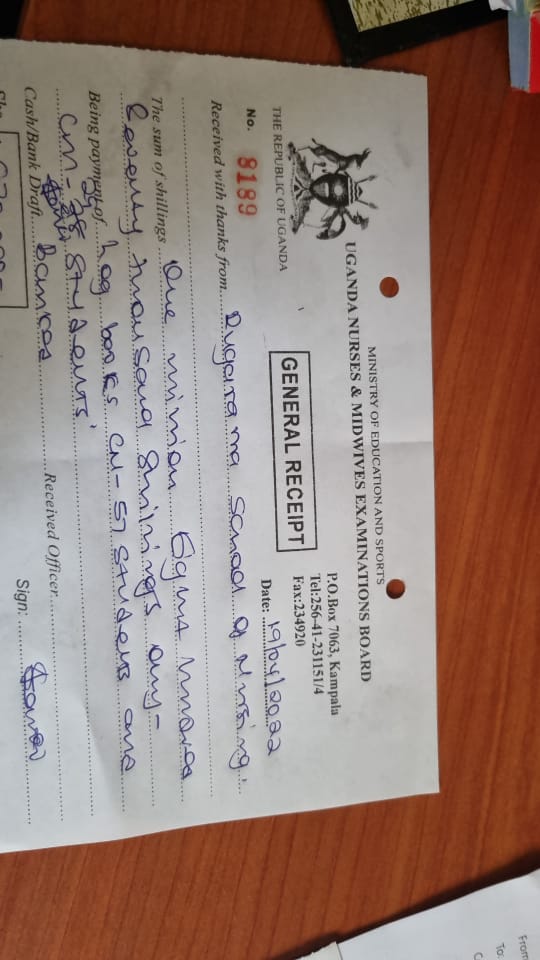 MINISTRY OF EDUCATION AND SPORTS
UGANDA NURSES & MIDWIVES EXAMINATIONS BOARD
THE REPUBLIC OF UGANDA
P.O.Box 7063, Kampala
Tel:256-41-231151/4
Fax:234920
GENERAL RECEIPT
No. 8189
Date: 19/04/2022
Received with thanks from Rugarama School of Nursing
The sum of shillings One million Eight hundred
Seventy thousand Shillings only-
Being payment of log books CN-57 students and
CM-38 students'
Cash/Bank Draft Banked
Received Officer
Sign:
From
To: